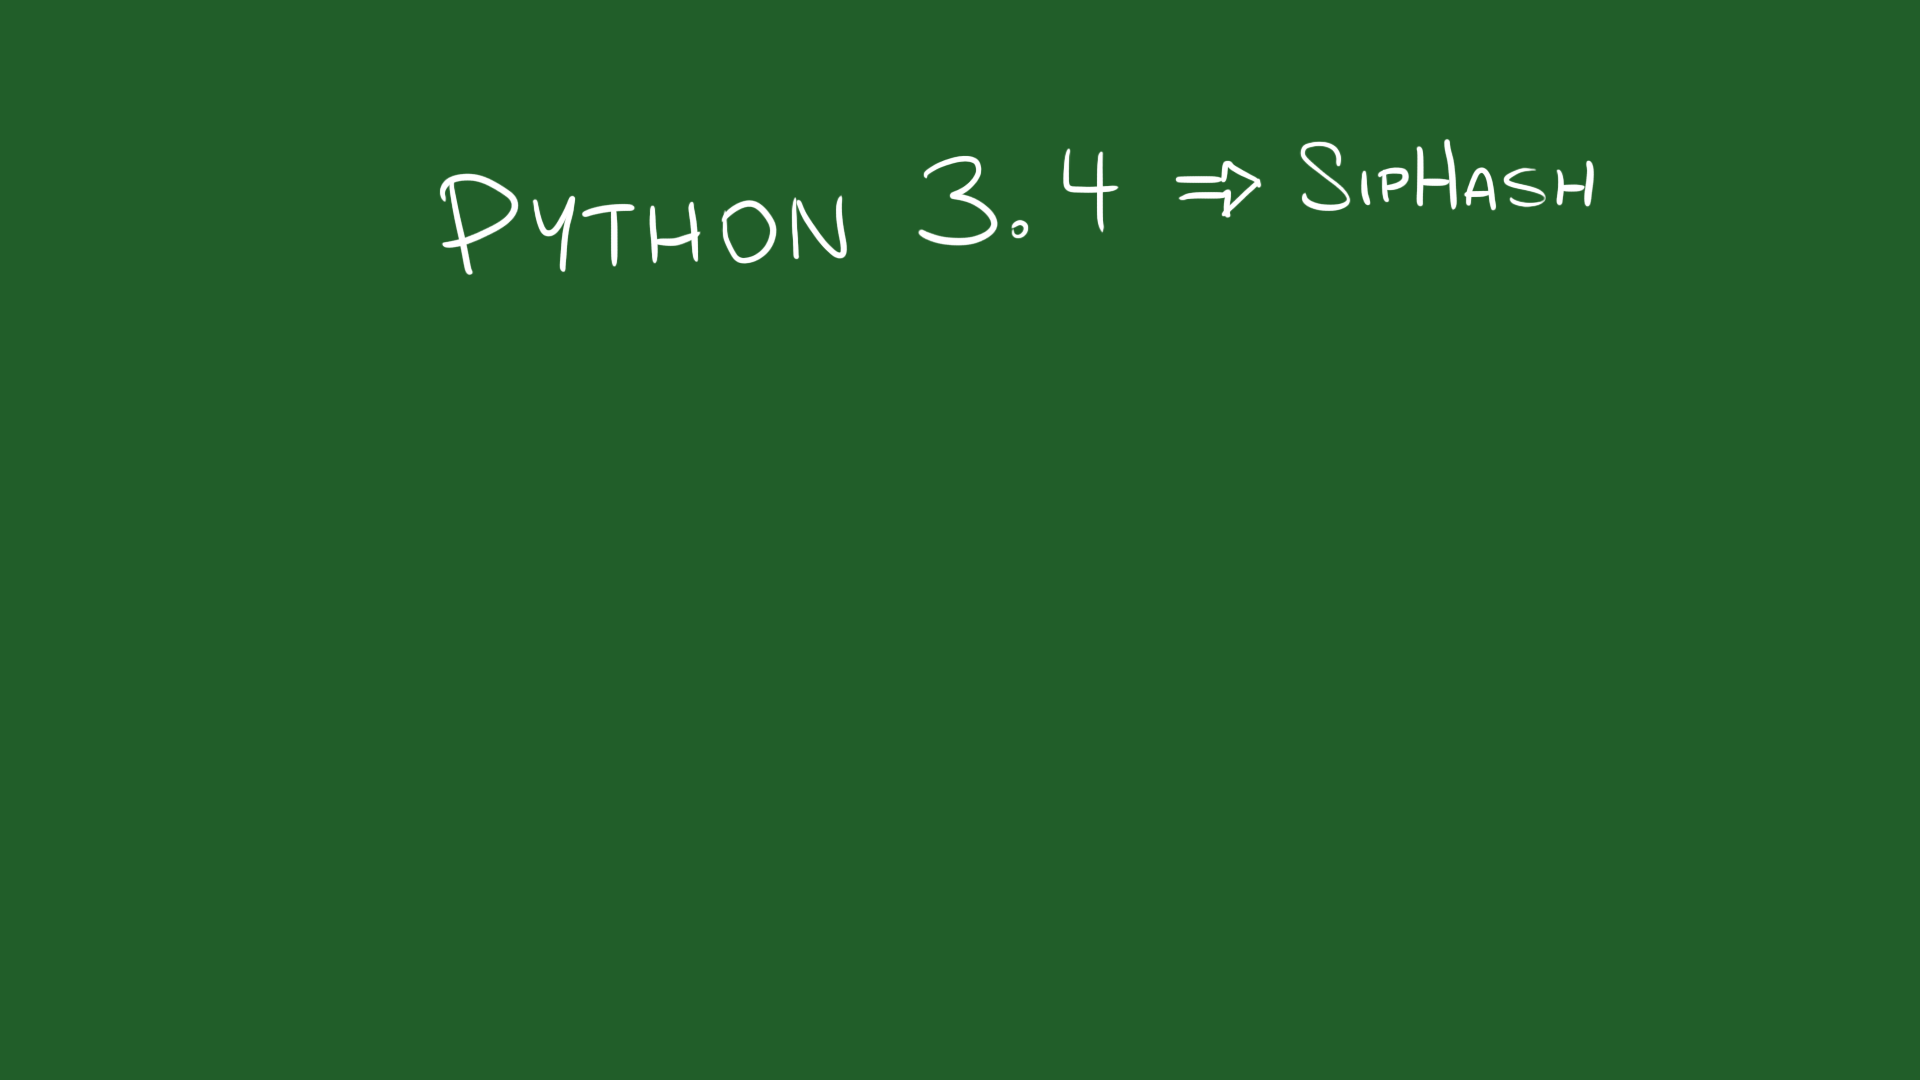 Python 3.4 ⇒ SipHash